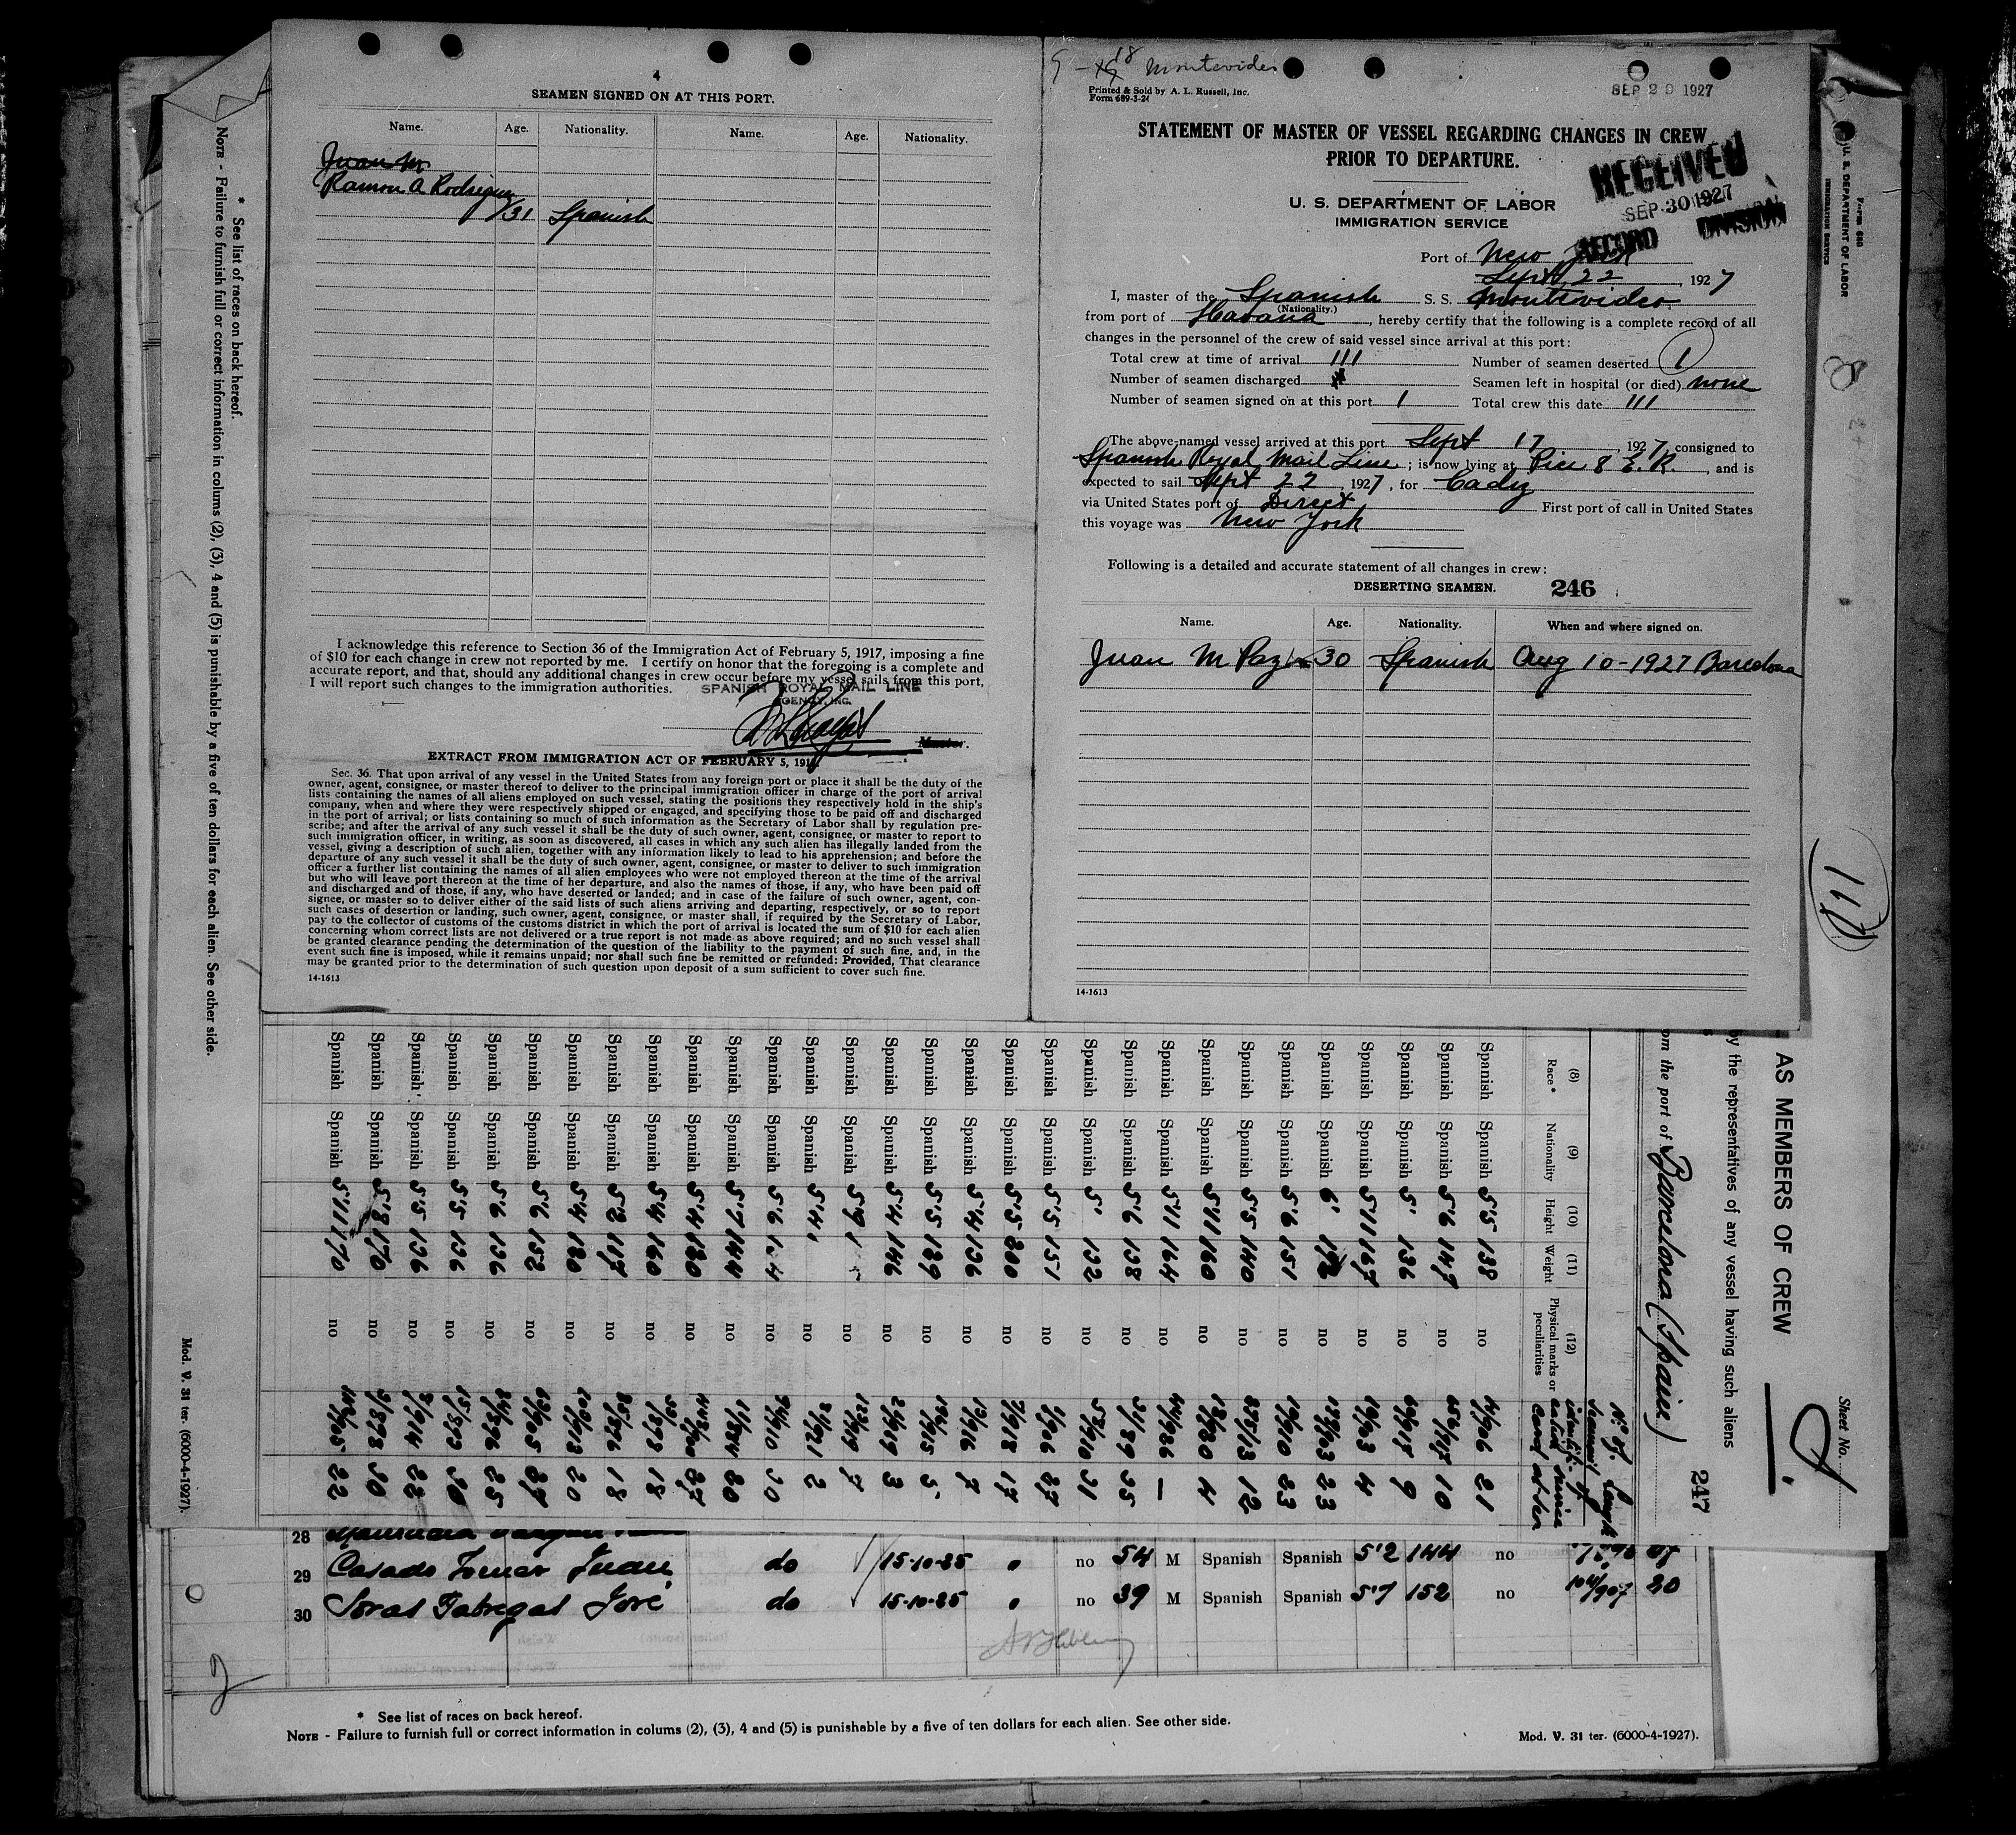 4
SEAMEN SIGNED ON AT THIS PORT.
Name. Age. Nationality. Name. Age. Nationality.
Juan M
Ramon A Rodriguez
31 Spanish
I acknowledge this reference to Section 36 of the Immigration Act of February 5, 1917, imposing a fine
of $10 for each change in crew not reported by me. I certify on honor that the foregoing is a complete and
accurate report, and that, should any additional changes in crew occur before my vessel sails from this port,
I will report such changes to the immigration authorities.
SPANISH ROYAL MAIL LINE
AGENCY, INC.
Master.
EXTRACT FROM IMMIGRATION ACT OF FEBRUARY 5, 1917
Sec. 36. That upon arrival of any vessel in the United States from any foreign port or place it shall be the duty of the
owner, agent, consignee, or master thereof to deliver to the principal immigration officer in charge of the port of arrival
lists containing the names of all aliens employed on such vessel, stating the positions they respectively hold in the ship's
company, when and where they were respectively shipped or engaged, and specifying those to be paid off and discharged
in the port of arrival; or lists containing so much of such information as the Secretary of Labor shall by regulation pre-
scribe; and after the arrival of any such vessel it shall be the duty of such owner, agent, consignee, or master to report to
such immigration officer, in writing, as soon as discovered, all cases in which any such alien has illegally landed from the
vessel, giving a description of such alien, together with any information likely to lead to his apprehension; and before the
departure of any such vessel it shall be the duty of such owner, agent, consignee, or master to deliver to such immigration
officer a further list containing the names of all alien employees who were not employed thereon at the time of the arrival
but who will leave port thereon at the time of her departure, and also the names of those, if any, who have been paid off
and discharged and of those, if any, who have deserted or landed; and in case of the failure of such owner, agent, con-
signee, or master so to deliver either of the said lists of such aliens arriving and departing, respectively, or so to report
such cases of desertion or landing, such owner, agent, consignee, or master shall, if required by the Secretary of Labor,
pay to the collector of customs of the customs district in which the port of arrival is located the sum of $10 for each alien
concerning whom correct lists are not delivered or a true report is not made as above required; and no such vessel shall
be granted clearance pending the determination of the question of the liability to the payment of such fine, and, in the
event such fine is imposed, while it remains unpaid; nor shall such fine be remitted or refunded: Provided, That clearance
may be granted prior to the determination of such question upon deposit of a sum sufficient to cover such fine.
14-1613
18 Montevideo
Printed & Sold by A. L. Russell, Inc.
Form 689-3-24
SEP 20 1927
STATEMENT OF MASTER OF VESSEL REGARDING CHANGES IN CREW
PRIOR TO DEPARTURE.
RECEIVED
SEP 30 1927
RECORD DIVISION
U. S. DEPARTMENT OF LABOR
IMMIGRATION SERVICE
Port of New York
Sept 22, 1927
I, master of the Spanish S. S. Montevideo
(Nationality.)
from port of Havana, hereby certify that the following is a complete record of all
changes in the personnel of the crew of said vessel since arrival at this port:
Total crew at time of arrival 111 Number of seamen deserted 1
Number of seamen discharged Seamen left in hospital (or died) none
Number of seamen signed on at this port 1 Total crew this date 111
The above-named vessel arrived at this port Sept 17, 1927, consigned to
Spanish Royal Mail Line; is now lying at Pier 8 E. R., and is
expected to sail Sept 22, 1927, for Cadiz
via United States port of Direct First port of call in United States
this voyage was New York
Following is a detailed and accurate statement of all changes in crew:
DESERTING SEAMEN. 246
Name. Age. Nationality. When and where signed on.
Juan M Paz 30 Spanish Aug 10-1927 Barcelona
14-1613
Form 680
U. S. DEPARTMENT OF LABOR
IMMIGRATION SERVICE
111
* See list of races on back hereof.
NOTE - Failure to furnish full or correct information in colums (2), (3), 4 and (5) is punishable by a five of ten dollars for each alien. See other side.
Mod. V. 31 ter. (6000-4-1927).
Sheet No.
AS MEMBERS OF CREW
by the representatives of any vessel having such aliens
om the port of Barcelona (Spain)
247
(8) (9) (10) (11) (12)
Race* Nationality Height Weight Physical marks or peculiarities
Spanish Spanish 5'5 138 no 21
Spanish Spanish 5'6 147 no 10
Spanish Spanish 5' 136 no 9
Spanish Spanish 5'11 167 no 4
Spanish Spanish 6' no 23
Spanish Spanish 5'6 151 no 23
Spanish Spanish 5'5 140 no 12
Spanish Spanish 5'11 160 no 4
Spanish Spanish 5'11 164 no
Spanish Spanish 5'6 138 no
Spanish Spanish 5' 132 no
Spanish Spanish 5'5 151 no
Spanish Spanish 5'5 200 no 17
Spanish Spanish 5'4 136 no 7
Spanish Spanish 5'5 139 no 5
Spanish Spanish 5'4 146 no 3
Spanish Spanish 5'9 no 7
Spanish Spanish 5'4 no 2
Spanish Spanish 5'6 134 no
Spanish Spanish 5'7 144 no
Spanish Spanish 5'4 130 no
Spanish Spanish 5'4 160 no 18
Spanish Spanish 5'2 117 no 18
Spanish Spanish 5'4 no 20
Spanish Spanish 5'6 132 no
Spanish Spanish 5'6 136 no 25
Spanish Spanish 5'5 136 no
Spanish Spanish 5'5 136 no 22
Spanish Spanish 5'8 170 no
Spanish Spanish 5'11 170 no 22
28
29 Casado Tomar Juan do 15-10-25 no 54 M Spanish Spanish 5'2 144 no
30 Soras Fabregat José do 15-10-25 no 39 M Spanish Spanish 5'7 152 no 20
2
* See list of races on back hereof.
NOTE - Failure to furnish full or correct information in colums (2), (3), 4 and (5) is punishable by a five of ten dollars for each alien. See other side.
Mod. V. 31 ter. (6000-4-1927).